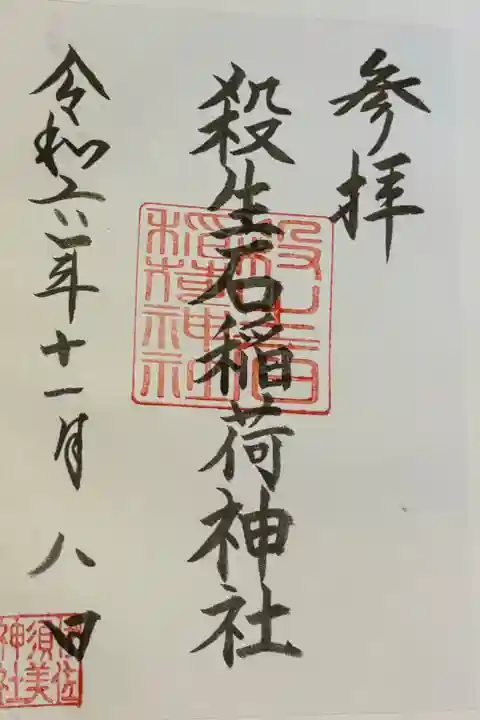 参拝
殺生石稲荷神社
令和六年十一月八日
殺生石稲荷神社
伊佐須美神社